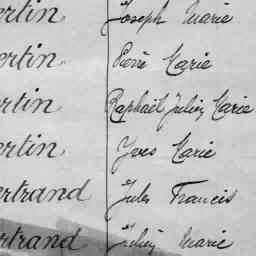 ertin Joseph Marie
ertin Pierre Marie
ertin Raphaël Julien Marie
ertin Yves Marie
ertrand Jules Francis
rtrand Julien Marie